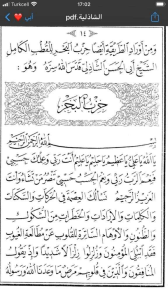 Turkcell 17:02
أبي الشاذلية.pdf
١٤
ومن أوراد الطريقة أيضا حزب البحر للقطب الكامل
الشيخ أبي الحسن الشاذلي قدس الله سره وهو :
حزب البحر
بسم الله الرحمن الرحيم
يا الله يا علي يا عظيم يا حليم يا عليم أنت ربي وعلمك حسبي
فنعم الرب ربي ونعم الحسب حسبي تنصر من تشاء وأنت
العزيز الرحيم نسألك العصمة في الحركات والسكنات
والكلمات والإرادات والخطرات من الشكوك
والظنون والأوهام الساترة للقلوب عن مطالعة الغيوب
فقد ابتلي المؤمنون وزلزلوا زلزالا شديدا وإذ يقول
المنافقون والذين في قلوبهم مرض ما وعدنا الله ورسوله